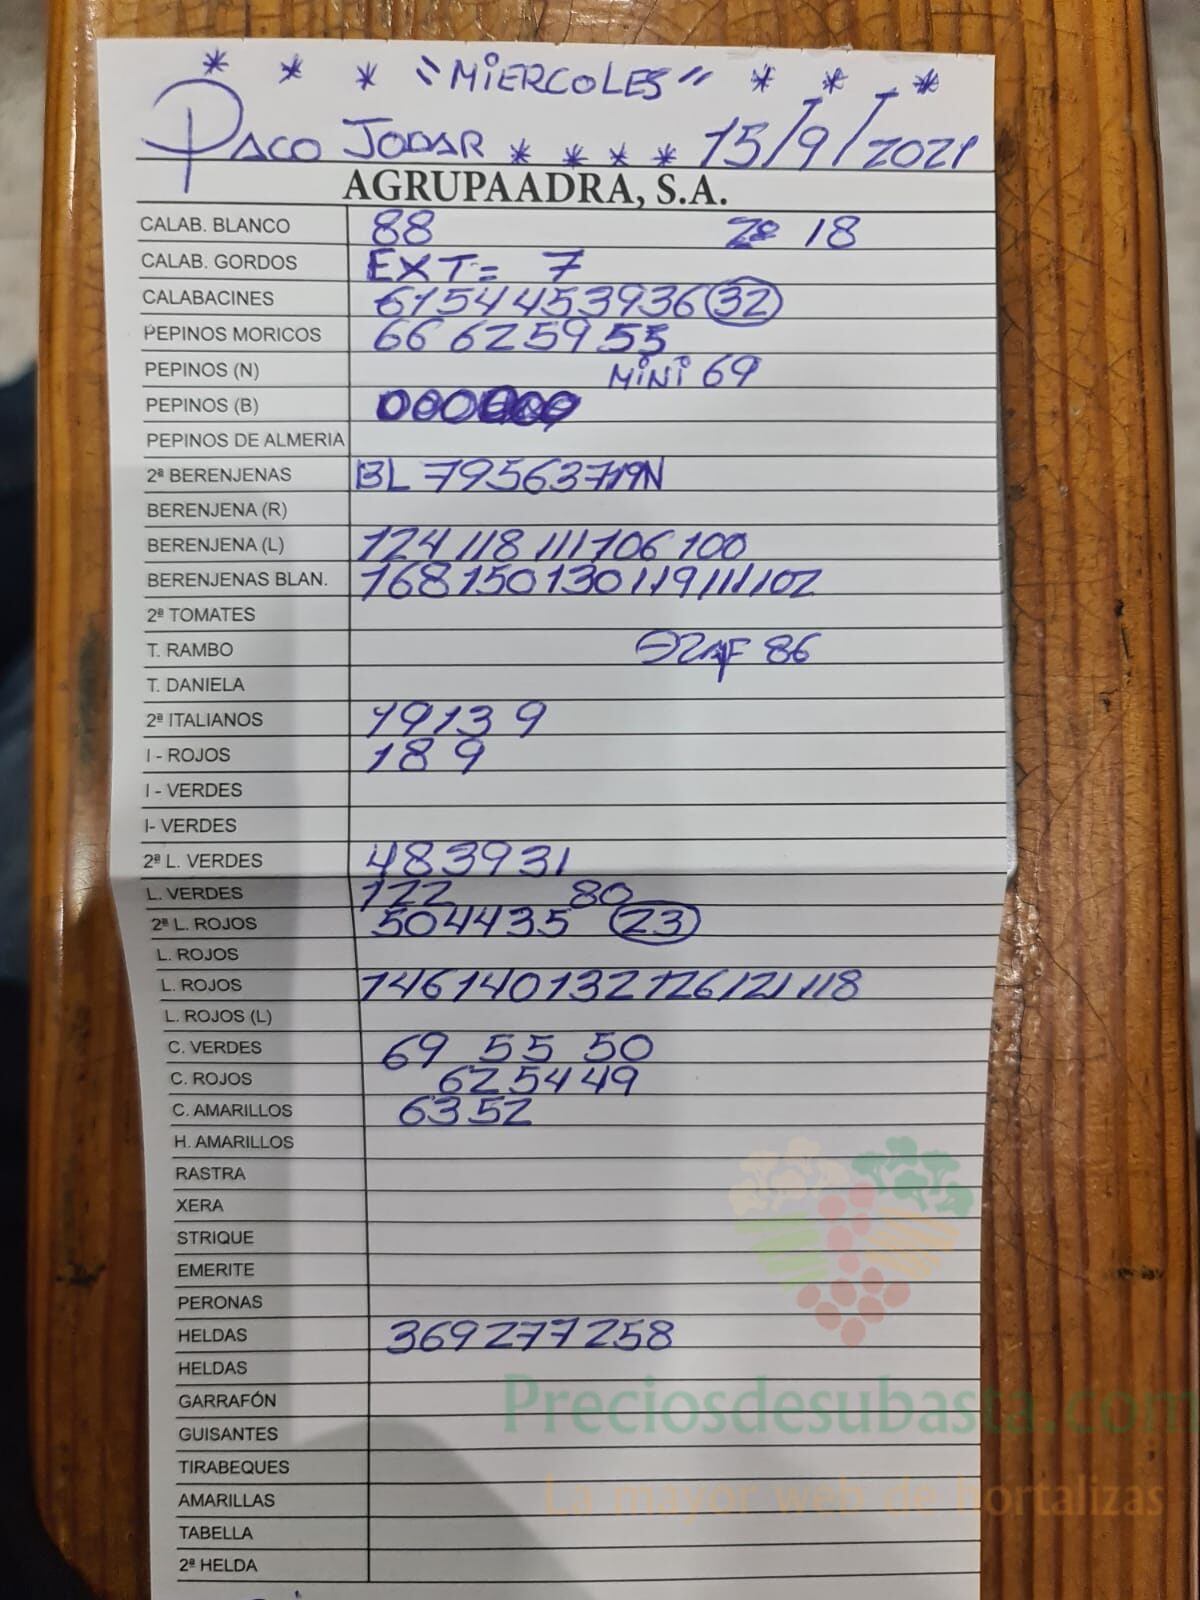 * * * "MIERCOLES" * * *
PACO JODAR * * * * 15/9/2021
AGRUPAADRA, S.A.
CALAB. BLANCO 88 2ª 18
CALAB. GORDOS EXT= 7
CALABACINES 61 54 44 53 93 6 32
PEPINOS MORICOS 66 62 59 55
PEPINOS (N) MINI 69
PEPINOS (B)
PEPINOS DE ALMERIA
2ª BERENJENAS BL 79 56 37 19N
BERENJENA (R)
BERENJENA (L) 124 118 111 106 100
BERENJENAS BLAN. 168 150 130 119 111 102
2ª TOMATES
T. RAMBO 86
T. DANIELA
2ª ITALIANOS 19 13 9
I - ROJOS 18 9
I - VERDES
I- VERDES
2ª L. VERDES 48 39 31
L. VERDES 122 80
2ª L. ROJOS 50 44 35 23
L. ROJOS
L. ROJOS 146 140 132 126 121 118
L. ROJOS (L)
C. VERDES 69 55 50
C. ROJOS 62 54 49
C. AMARILLOS 63 52
H. AMARILLOS
RASTRA
XERA
STRIQUE
EMERITE
PERONAS
HELDAS 369 277 258
HELDAS
GARRAFÓN
GUISANTES
TIRABEQUES
AMARILLAS
TABELLA
2ª HELDA
Preciosdesubasta.com
La mayor web de hortalizas